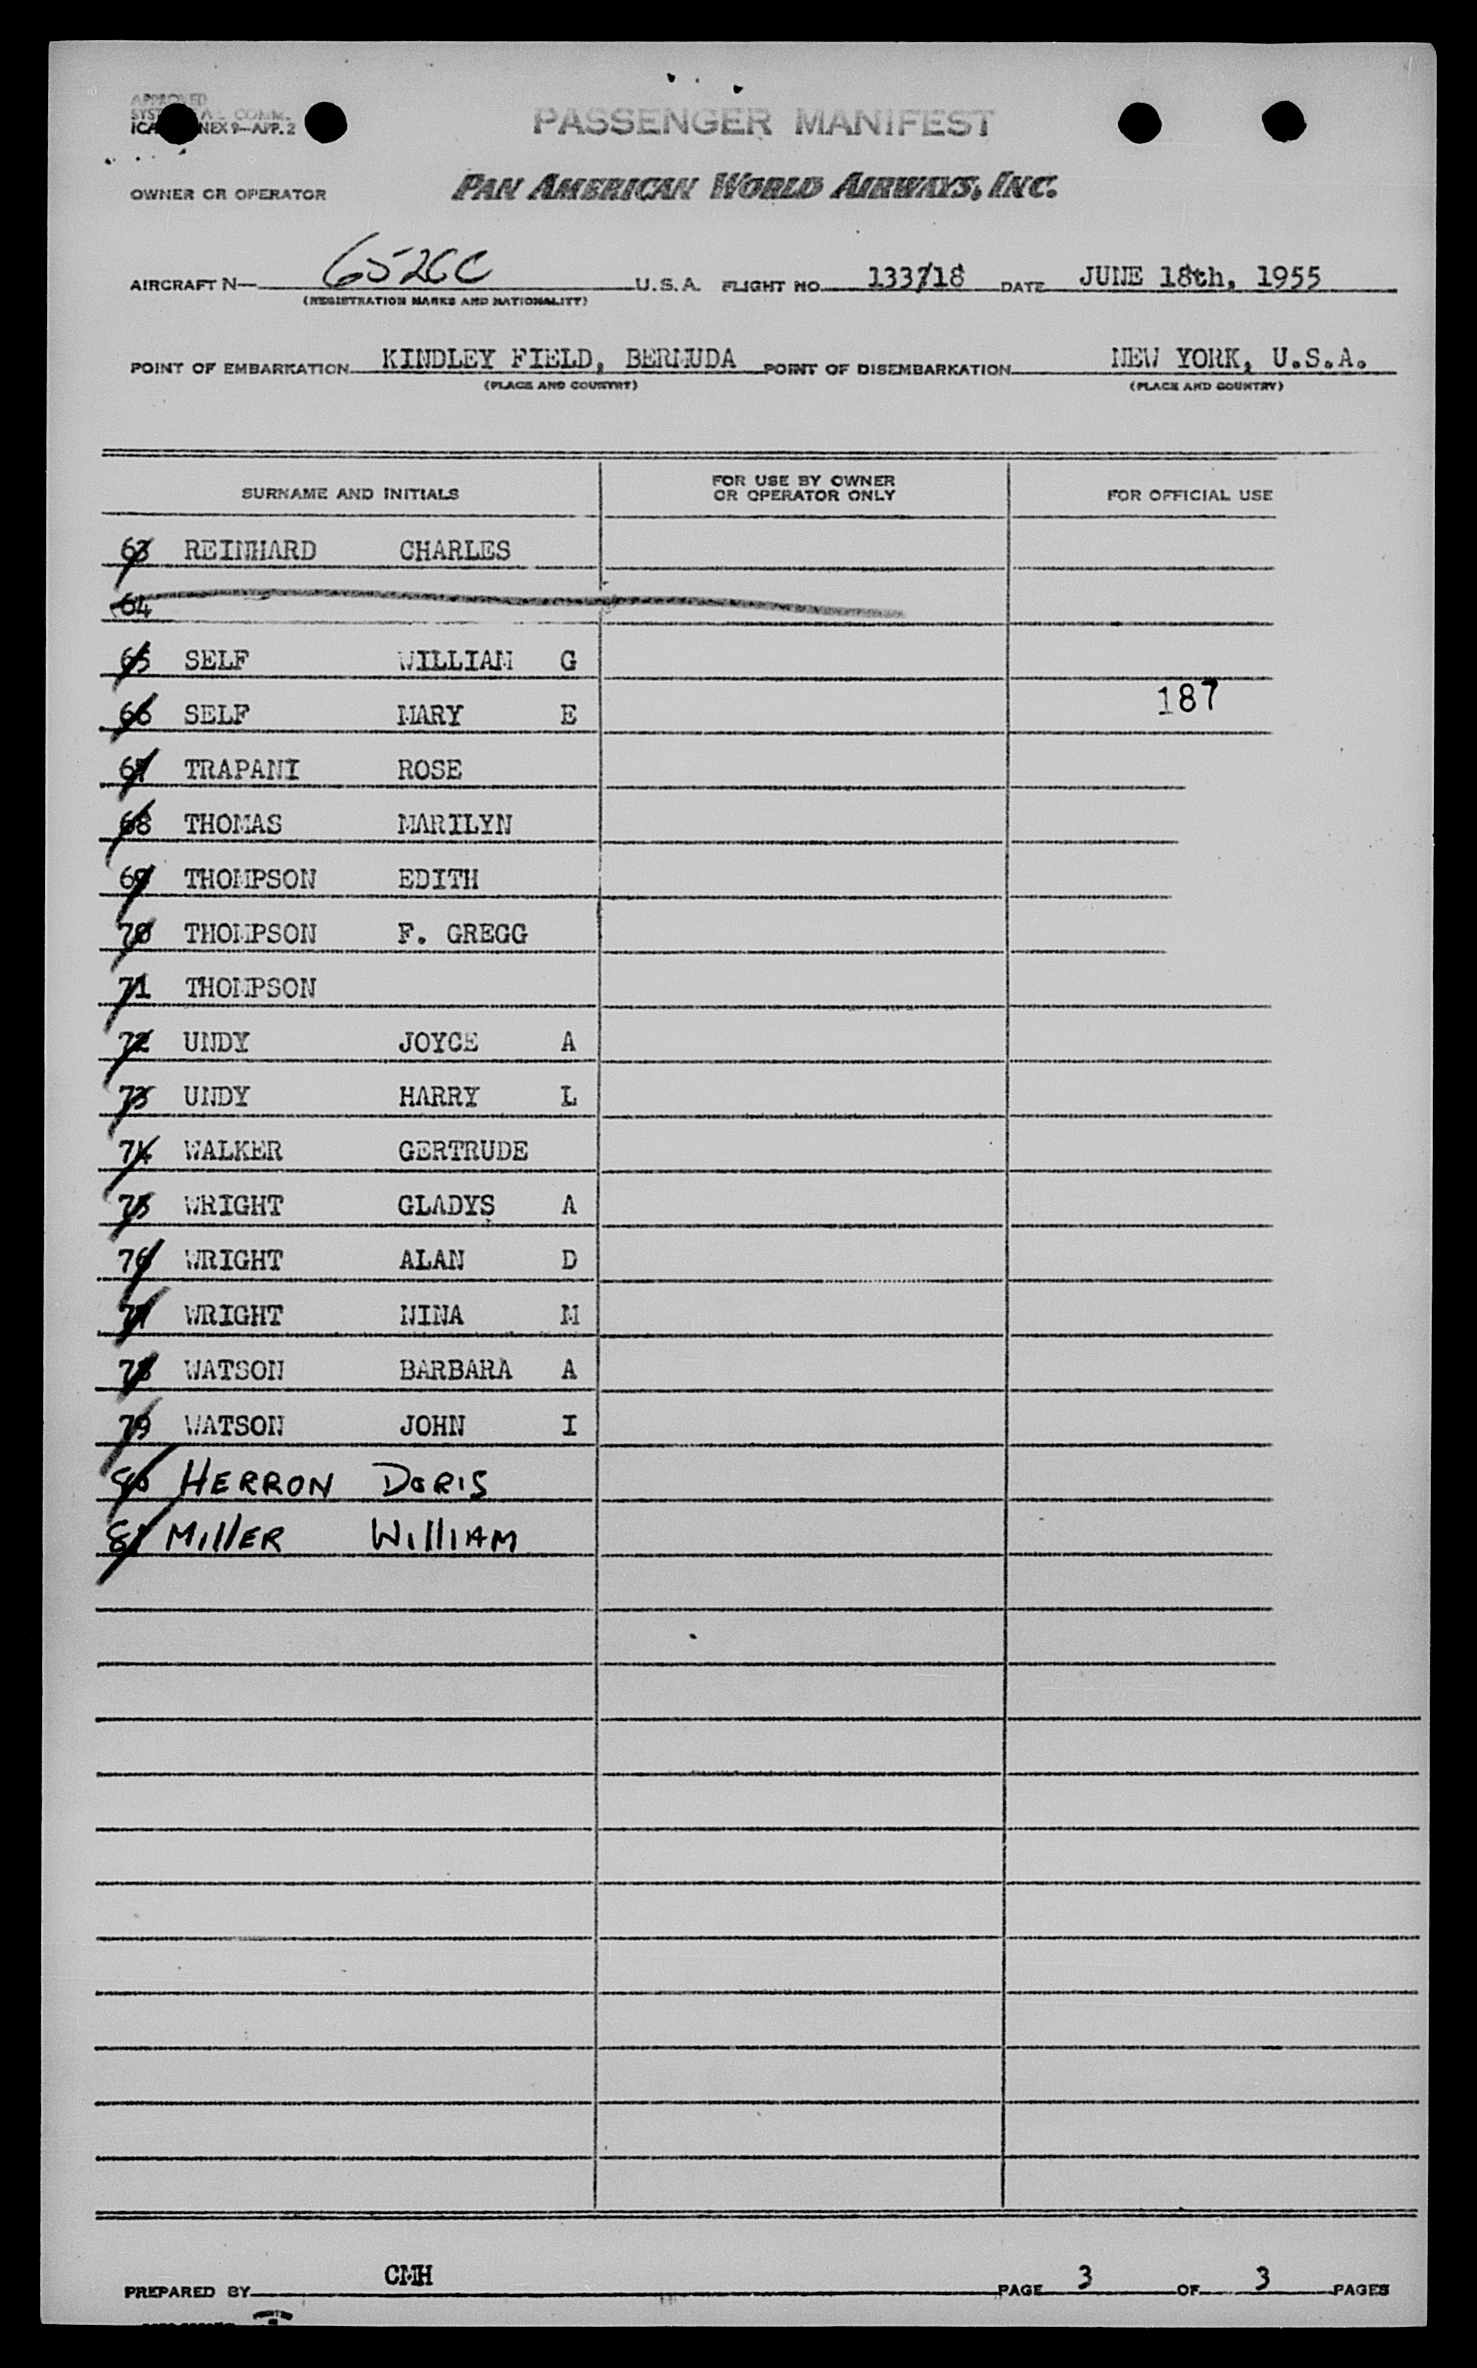 APPROVED
ICA NEX 9—APP. 2
PASSENGER MANIFEST
OWNER OR OPERATOR PAN AMERICAN WORLD AIRWAYS, INC.
AIRCRAFT N— U.S.A. FLIGHT NO. 133/18 DATE JUNE 18th, 1955
(REGISTRATION MARKS AND NATIONALITY)
POINT OF EMBARKATION KINDLEY FIELD, BERMUDA POINT OF DISEMBARKATION NEW YORK, U.S.A.
(PLACE AND COUNTRY) (PLACE AND COUNTRY)
SURNAME AND INITIALS FOR USE BY OWNER OR OPERATOR ONLY FOR OFFICIAL USE
63 REINHARD CHARLES
64
65 SELF WILLIAM G
66 SELF MARY E 187
67 TRAPANI ROSE
68 THOMAS MARILYN
69 THOMPSON EDITH
70 THOMPSON F. GREGG
71 THOMPSON
72 UNDY JOYCE A
73 UNDY HARRY L
74 WALKER GERTRUDE
75 WRIGHT GLADYS A
76 WRIGHT ALAN D
77 WRIGHT NINA M
78 WATSON BARBARA A
79 WATSON JOHN I
80 HERRON DORIS
81 MILLER WILLIAM
PREPARED BY CMH PAGE 3 OF 3 PAGES